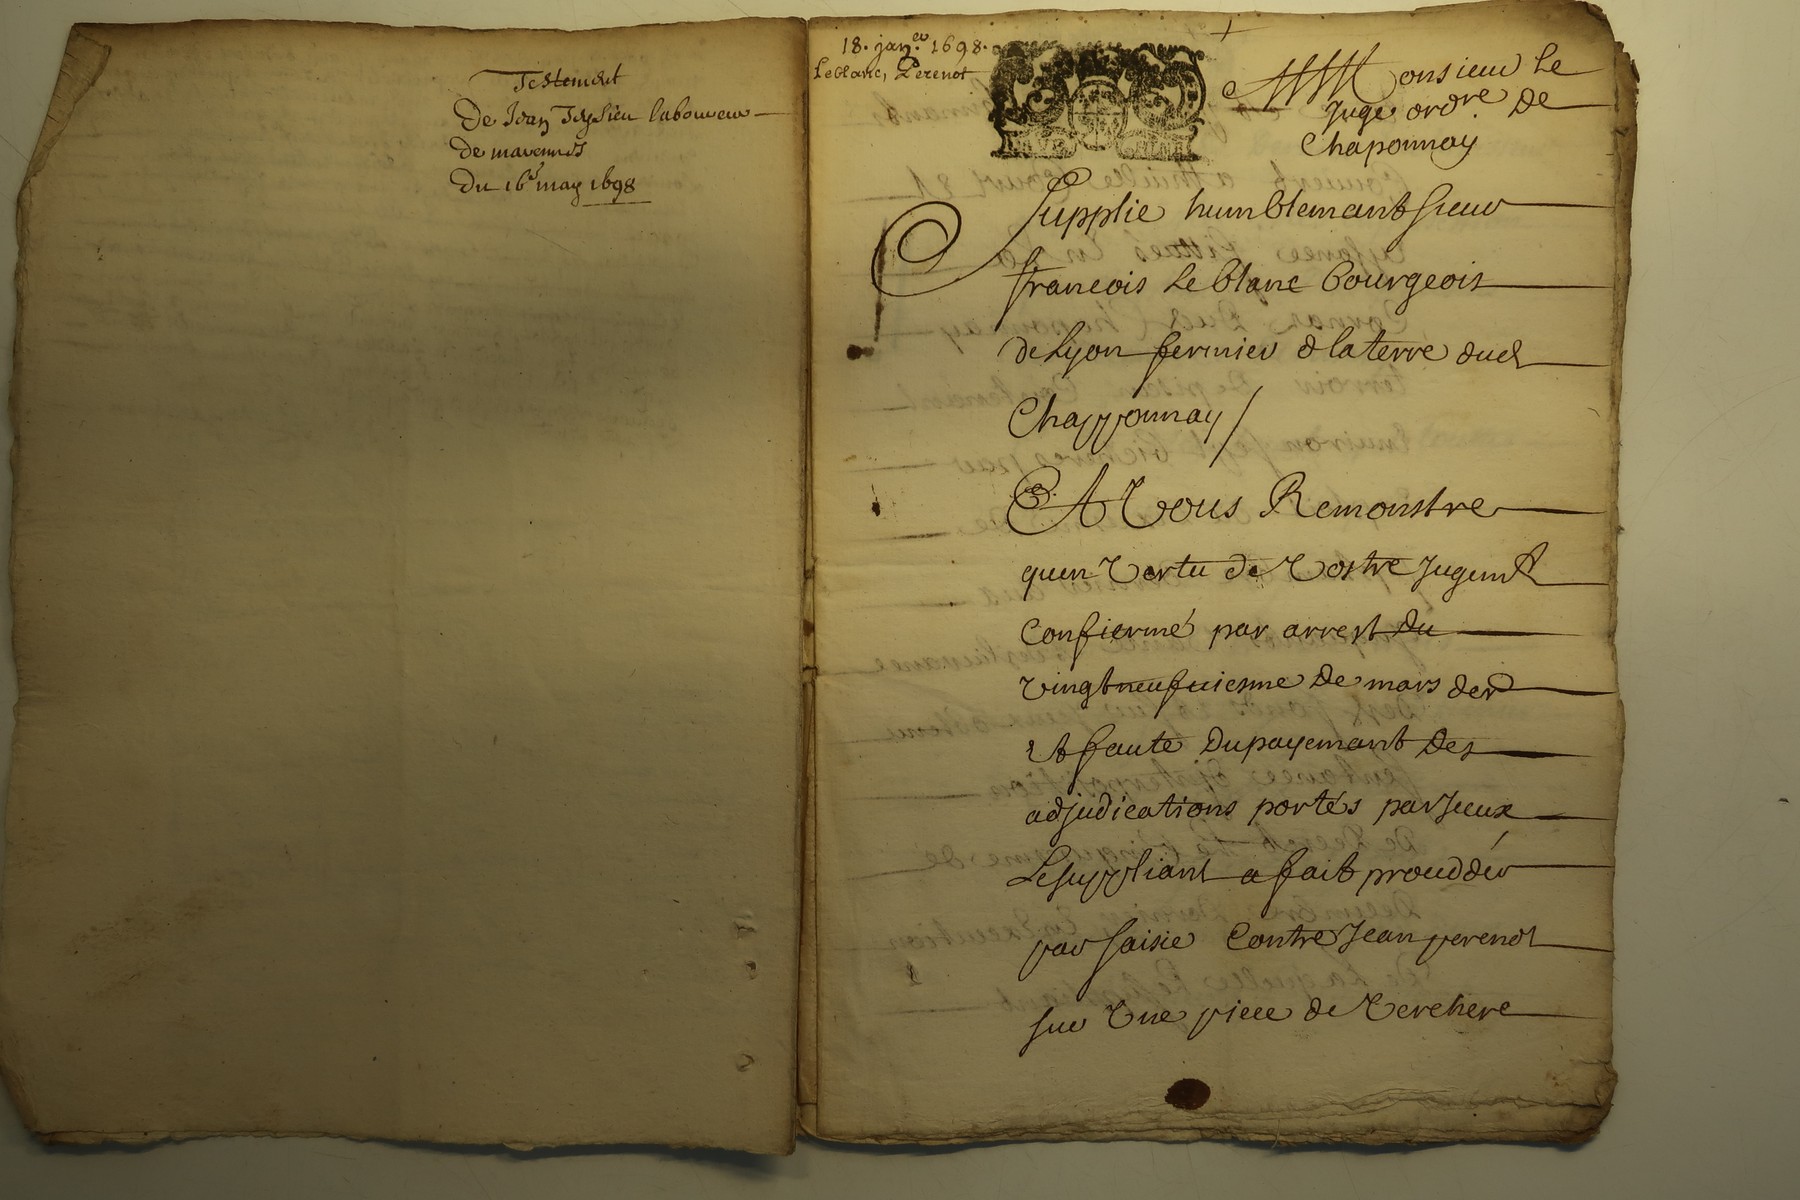 Testement
De Jean Teysieu laboureur
de marennes
Du 16e may 1698
18. janer 1698.
Leblanc, Perenot
Monsieur Le
Juge ordre. De
Chaponnay
Supplie humblemant sieur
francois Le blanc bourgeois
de Lyon fermier d la terre dud
Chapponnay /
A Vous Remonstre
quen Vertu de Vostre Jugemt
confiermé par arrest du
vingtneufuiesme de mars der
Et faute Du payemant Des
adjudications portés par Jceux
Le suppliant a fait proudder
par saisie Contre Jean perenot
sur Vne piece de Verchere